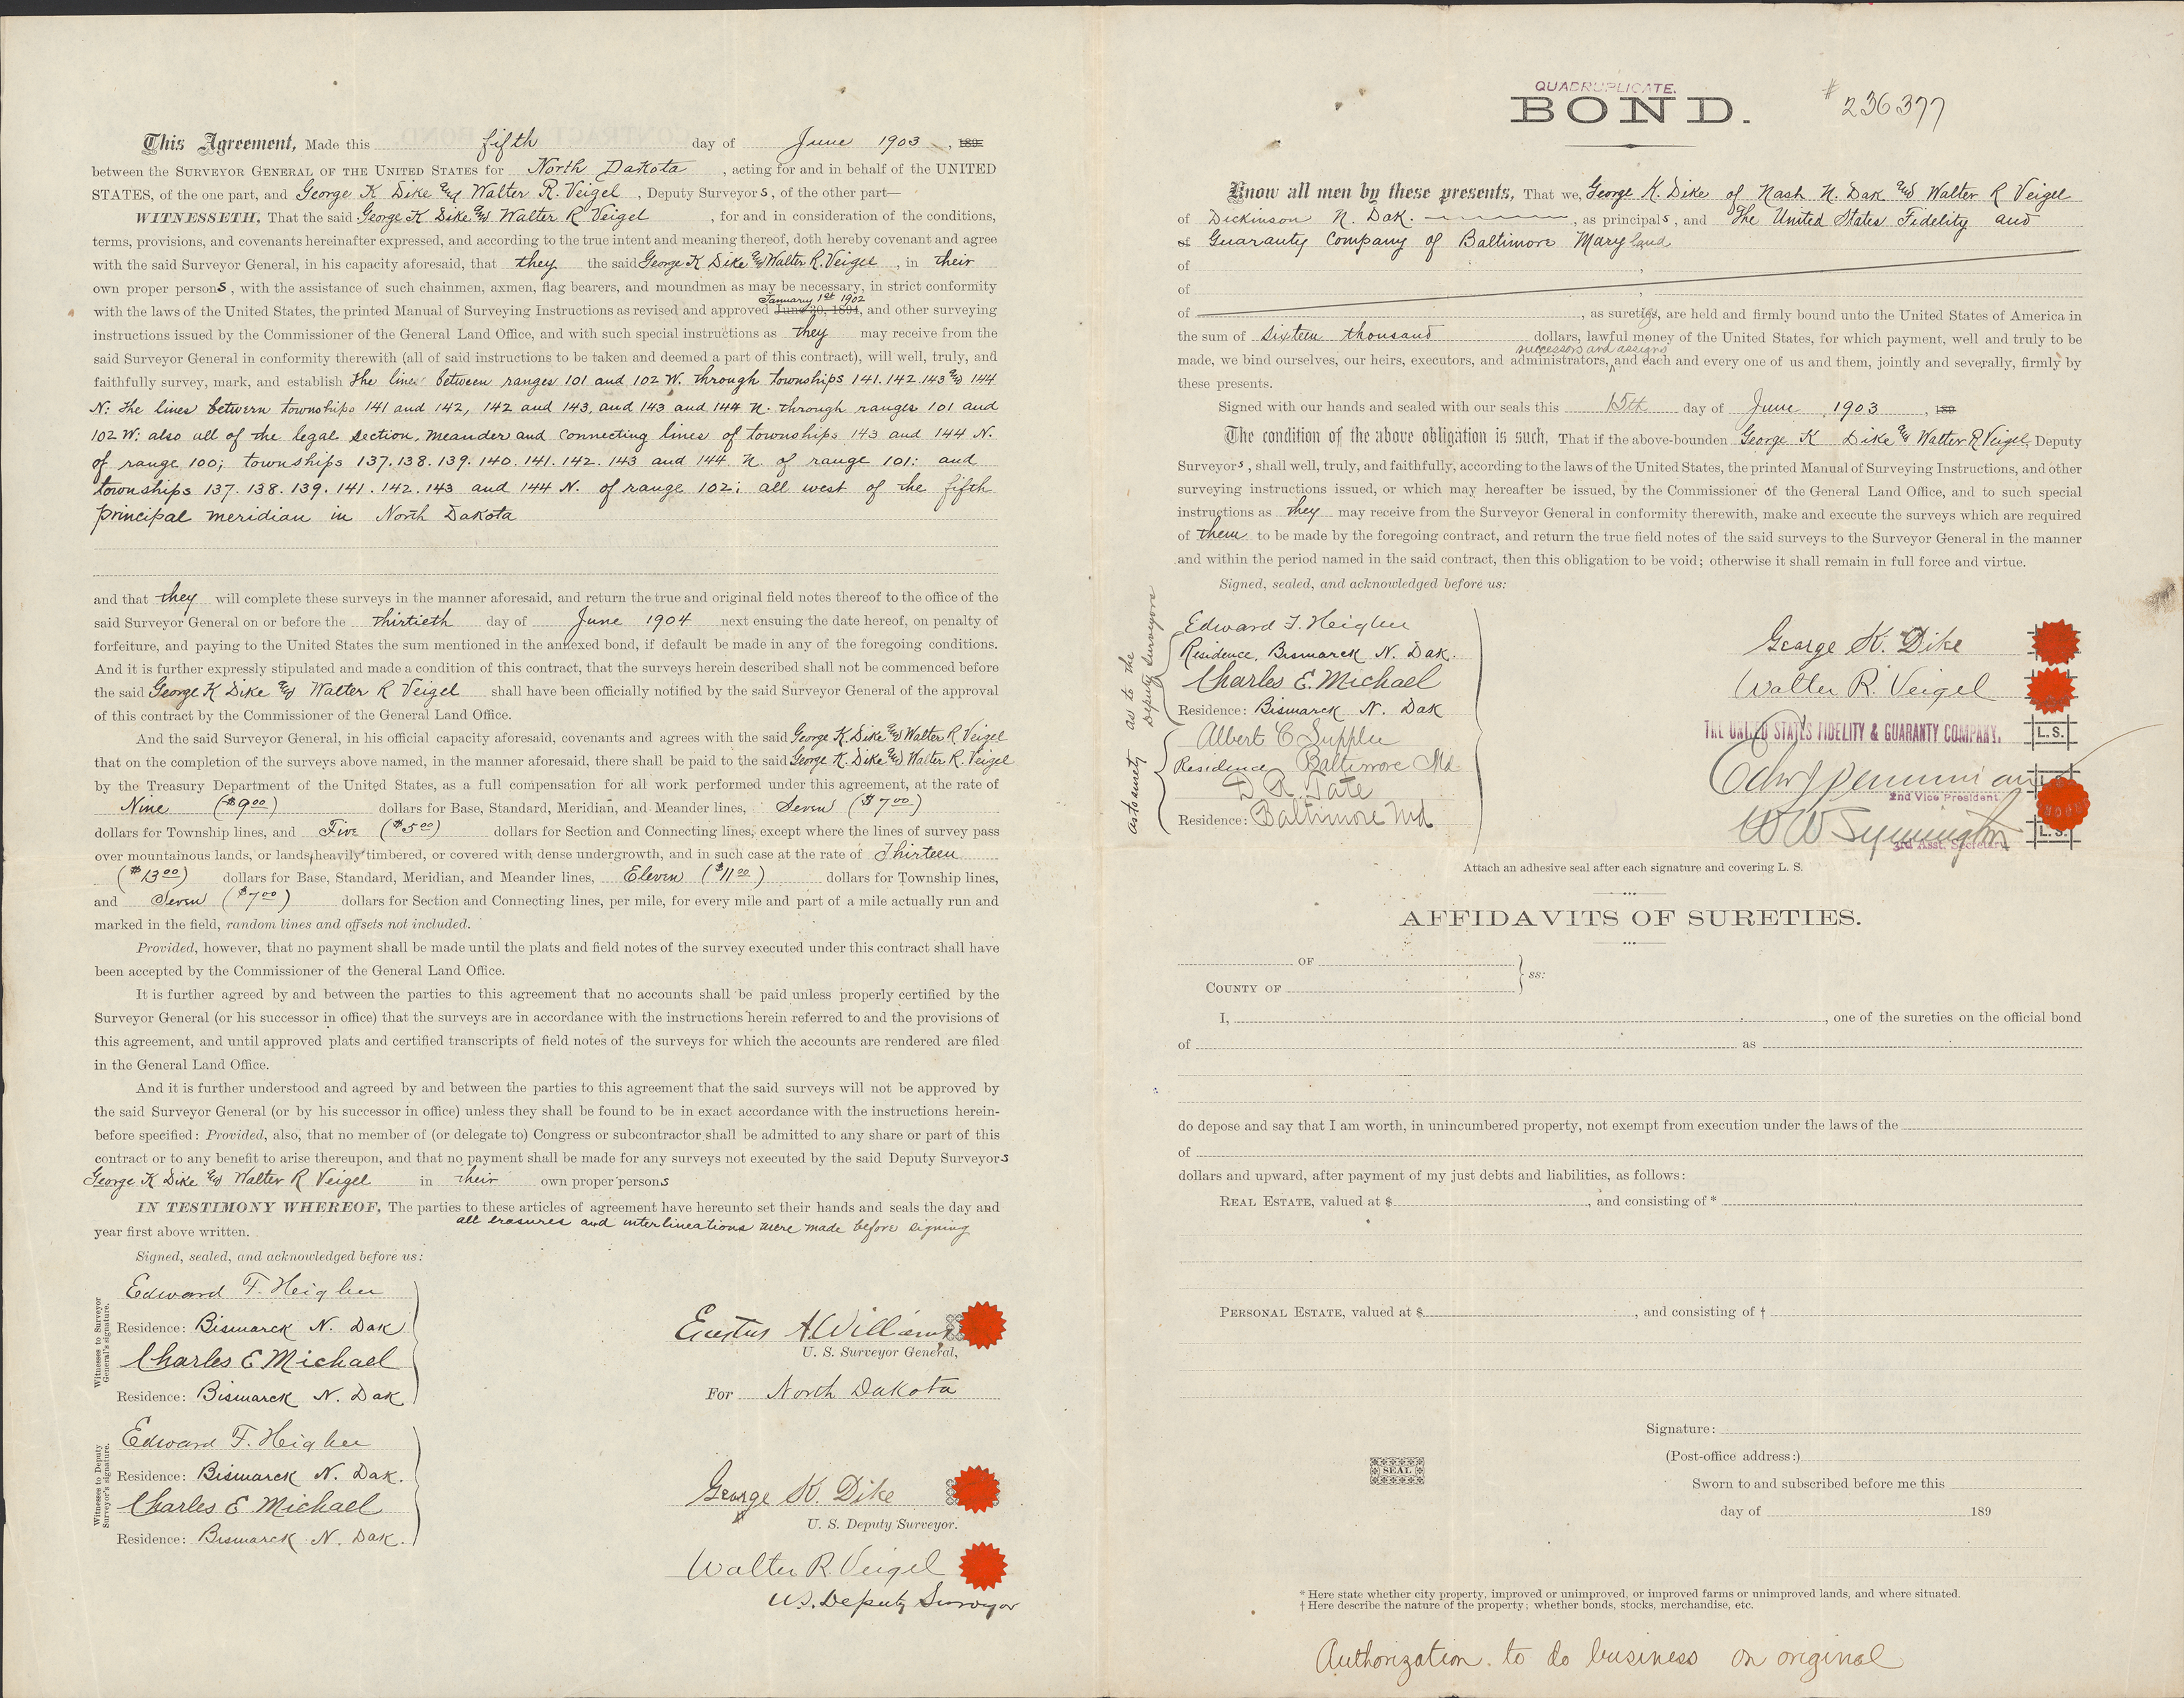 This Agreement, Made this fifth day of June 1903, 189
between the SURVEYOR GENERAL OF THE UNITED STATES for North Dakota, acting for and in behalf of the UNITED
STATES, of the one part, and George K Dike and Walter R. Veigel, Deputy Surveyors, of the other part—
WITNESSETH, That the said George K Dike and Walter R Veigel, for and in consideration of the conditions,
terms, provisions, and covenants hereinafter expressed, and according to the true intent and meaning thereof, doth hereby covenant and agree
with the said Surveyor General, in his capacity aforesaid, that they the said George K Dike and Walter R. Veigel, in their
own proper persons, with the assistance of such chainmen, axmen, flag bearers, and moundmen as may be necessary, in strict conformity
January 1st 1902
with the laws of the United States, the printed Manual of Surveying Instructions as revised and approved June 30, 1894, and other surveying
instructions issued by the Commissioner of the General Land Office, and with such special instructions as they may receive from the
said Surveyor General in conformity therewith (all of said instructions to be taken and deemed a part of this contract), will well, truly, and
faithfully survey, mark, and establish the lines between ranges 101 and 102 W. through townships 141. 142. 143 and 144
N: the lines between townships 141 and 142, 142 and 143, and 143 and 144 N. through ranges 101 and
102 W: also all of the legal section, meander and connecting lines of townships 143 and 144 N.
of range 100; townships 137. 138. 139. 140. 141. 142. 143 and 144 N. of range 101: and
townships 137. 138. 139. 141. 142. 143 and 144 N. of range 102; all west of the fifth
principal meridian in North Dakota
and that they will complete these surveys in the manner aforesaid, and return the true and original field notes thereof to the office of the
said Surveyor General on or before the thirtieth day of June 1904 next ensuing the date hereof, on penalty of
forfeiture, and paying to the United States the sum mentioned in the annexed bond, if default be made in any of the foregoing conditions.
And it is further expressly stipulated and made a condition of this contract, that the surveys herein described shall not be commenced before
the said George K Dike and Walter R Veigel shall have been officially notified by the said Surveyor General of the approval
of this contract by the Commissioner of the General Land Office.
And the said Surveyor General, in his official capacity aforesaid, covenants and agrees with the said George K. Dike and Walter R. Veigel
that on the completion of the surveys above named, in the manner aforesaid, there shall be paid to the said George K. Dike and Walter R. Veigel
by the Treasury Department of the United States, as a full compensation for all work performed under this agreement, at the rate of
Nine ($9 00) dollars for Base, Standard, Meridian, and Meander lines, Seven ($7 00)
dollars for Township lines, and Five ($5 00) dollars for Section and Connecting lines, except where the lines of survey pass
over mountainous lands, or lands heavily timbered, or covered with dense undergrowth, and in such case at the rate of Thirteen
($13 00) dollars for Base, Standard, Meridian, and Meander lines, Eleven ($11 00) dollars for Township lines,
and Seven ($7 00) dollars for Section and Connecting lines, per mile, for every mile and part of a mile actually run and
marked in the field, random lines and offsets not included.
Provided, however, that no payment shall be made until the plats and field notes of the survey executed under this contract shall have
been accepted by the Commissioner of the General Land Office.
It is further agreed by and between the parties to this agreement that no accounts shall be paid unless properly certified by the
Surveyor General (or his successor in office) that the surveys are in accordance with the instructions herein referred to and the provisions of
this agreement, and until approved plats and certified transcripts of field notes of the surveys for which the accounts are rendered are filed
in the General Land Office.
And it is further understood and agreed by and between the parties to this agreement that the said surveys will not be approved by
the said Surveyor General (or by his successor in office) unless they shall be found to be in exact accordance with the instructions herein-
before specified: Provided, also, that no member of (or delegate to) Congress or subcontractor shall be admitted to any share or part of this
contract or to any benefit to arise thereupon, and that no payment shall be made for any surveys not executed by the said Deputy Surveyors
George K Dike and Walter R Veigel in their own proper persons
IN TESTIMONY WHEREOF, The parties to these articles of agreement have hereunto set their hands and seals the day and
year first above written. all erasures and interlineations were made before signing
Signed, sealed, and acknowledged before us:
Witnesses to Surveyor General's signature.
Edward F. Heigher
Residence: Bismarck N. Dak
Charles E Michael
Residence: Bismarck N. Dak
Erastus A Williams
U. S. Surveyor General,
For North Dakota
Witnesses to Deputy Surveyor's signature.
Edward F. Heigher
Residence: Bismarck N. Dak.
Charles E Michael
Residence: Bismarck N. Dak.
George K. Dike
U. S. Deputy Surveyor.
Walter R. Veigel
U.S. Deputy Surveyor
QUADRUPLICATE.
BOND.
# 236377
Know all men by these presents, That we, George K. Dike of Nash N. Dak and Walter R Veigel
of Dickinson N. Dak., as principals, and The United States Fidelity and
of Guaranty Company of Baltimore Maryland
of ,
of ,
of , as sureties, are held and firmly bound unto the United States of America in
the sum of Sixteen thousand dollars, lawful money of the United States, for which payment, well and truly to be
successors and assigns
made, we bind ourselves, our heirs, executors, and administrators, and each and every one of us and them, jointly and severally, firmly by
these presents.
Signed with our hands and sealed with our seals this 15th day of June, 1903, 189
The condition of the above obligation is such, That if the above-bounden George K Dike and Walter R Veigel, Deputy
Surveyors, shall well, truly, and faithfully, according to the laws of the United States, the printed Manual of Surveying Instructions, and other
surveying instructions issued, or which may hereafter be issued, by the Commissioner of the General Land Office, and to such special
instructions as they may receive from the Surveyor General in conformity therewith, make and execute the surveys which are required
of them to be made by the foregoing contract, and return the true field notes of the said surveys to the Surveyor General in the manner
and within the period named in the said contract, then this obligation to be void; otherwise it shall remain in full force and virtue.
Signed, sealed, and acknowledged before us:
as to the Deputy Surveyors
Edward F. Heigher
Residence, Bismarck N. Dak.
Charles E. Michael
Residence: Bismarck N. Dak
as to surety
Albert C Supplee
Residence Baltimore Md
D R Tate
Residence: Baltimore Md
George K. Dike
Walter R. Veigel
THE UNITED STATES FIDELITY & GUARANTY COMPANY.
L. S.
2nd Vice President
W W Symington
L. S.
3rd Asst. Secretary
Attach an adhesive seal after each signature and covering L. S.
AFFIDAVITS OF SURETIES.
OF
ss:
COUNTY OF
I, , one of the sureties on the official bond
of as
do depose and say that I am worth, in unincumbered property, not exempt from execution under the laws of the
of
dollars and upward, after payment of my just debts and liabilities, as follows:
REAL ESTATE, valued at $ , and consisting of *
PERSONAL ESTATE, valued at $ , and consisting of †
Signature:
(Post-office address:)
SEAL
Sworn to and subscribed before me this
day of 189
* Here state whether city property, improved or unimproved, or improved farms or unimproved lands, and where situated.
† Here describe the nature of the property; whether bonds, stocks, merchandise, etc.
Authorization to do business on original